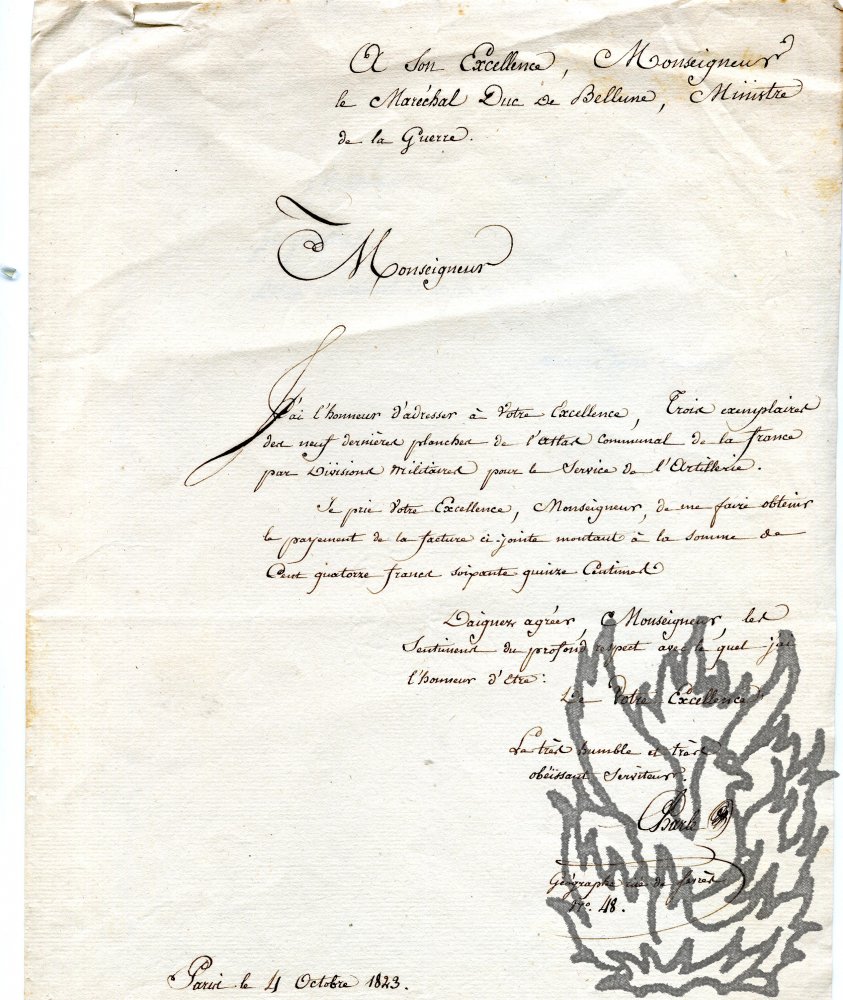 A Son Excellence, Monseigneur
le Maréchal Duc de Bellune, Ministre
de la Guerre.
Monseigneur
J'ai l'honneur d'adresser à Votre Excellence, Trois exemplaires
des neuf dernières planches de l'atlas Communal de la france
par Divisions Militaires pour le Service de l'Artillerie.
Je prie Votre Excellence, Monseigneur, de me faire obtenir
le payement de la facture ci jointe montant à la somme de
Cent quatorze francs soixante quinze Centimes
Daignez agréer, Monseigneur, les
Sentimens du profond respect avec le quel j'ai
l'honneur d'Etre:
De Votre Excellence
Le très humble et très
obéissant Serviteur.
Charle
Géographe rue de
N°. 48.
Paris le 4 Octobre 1823.